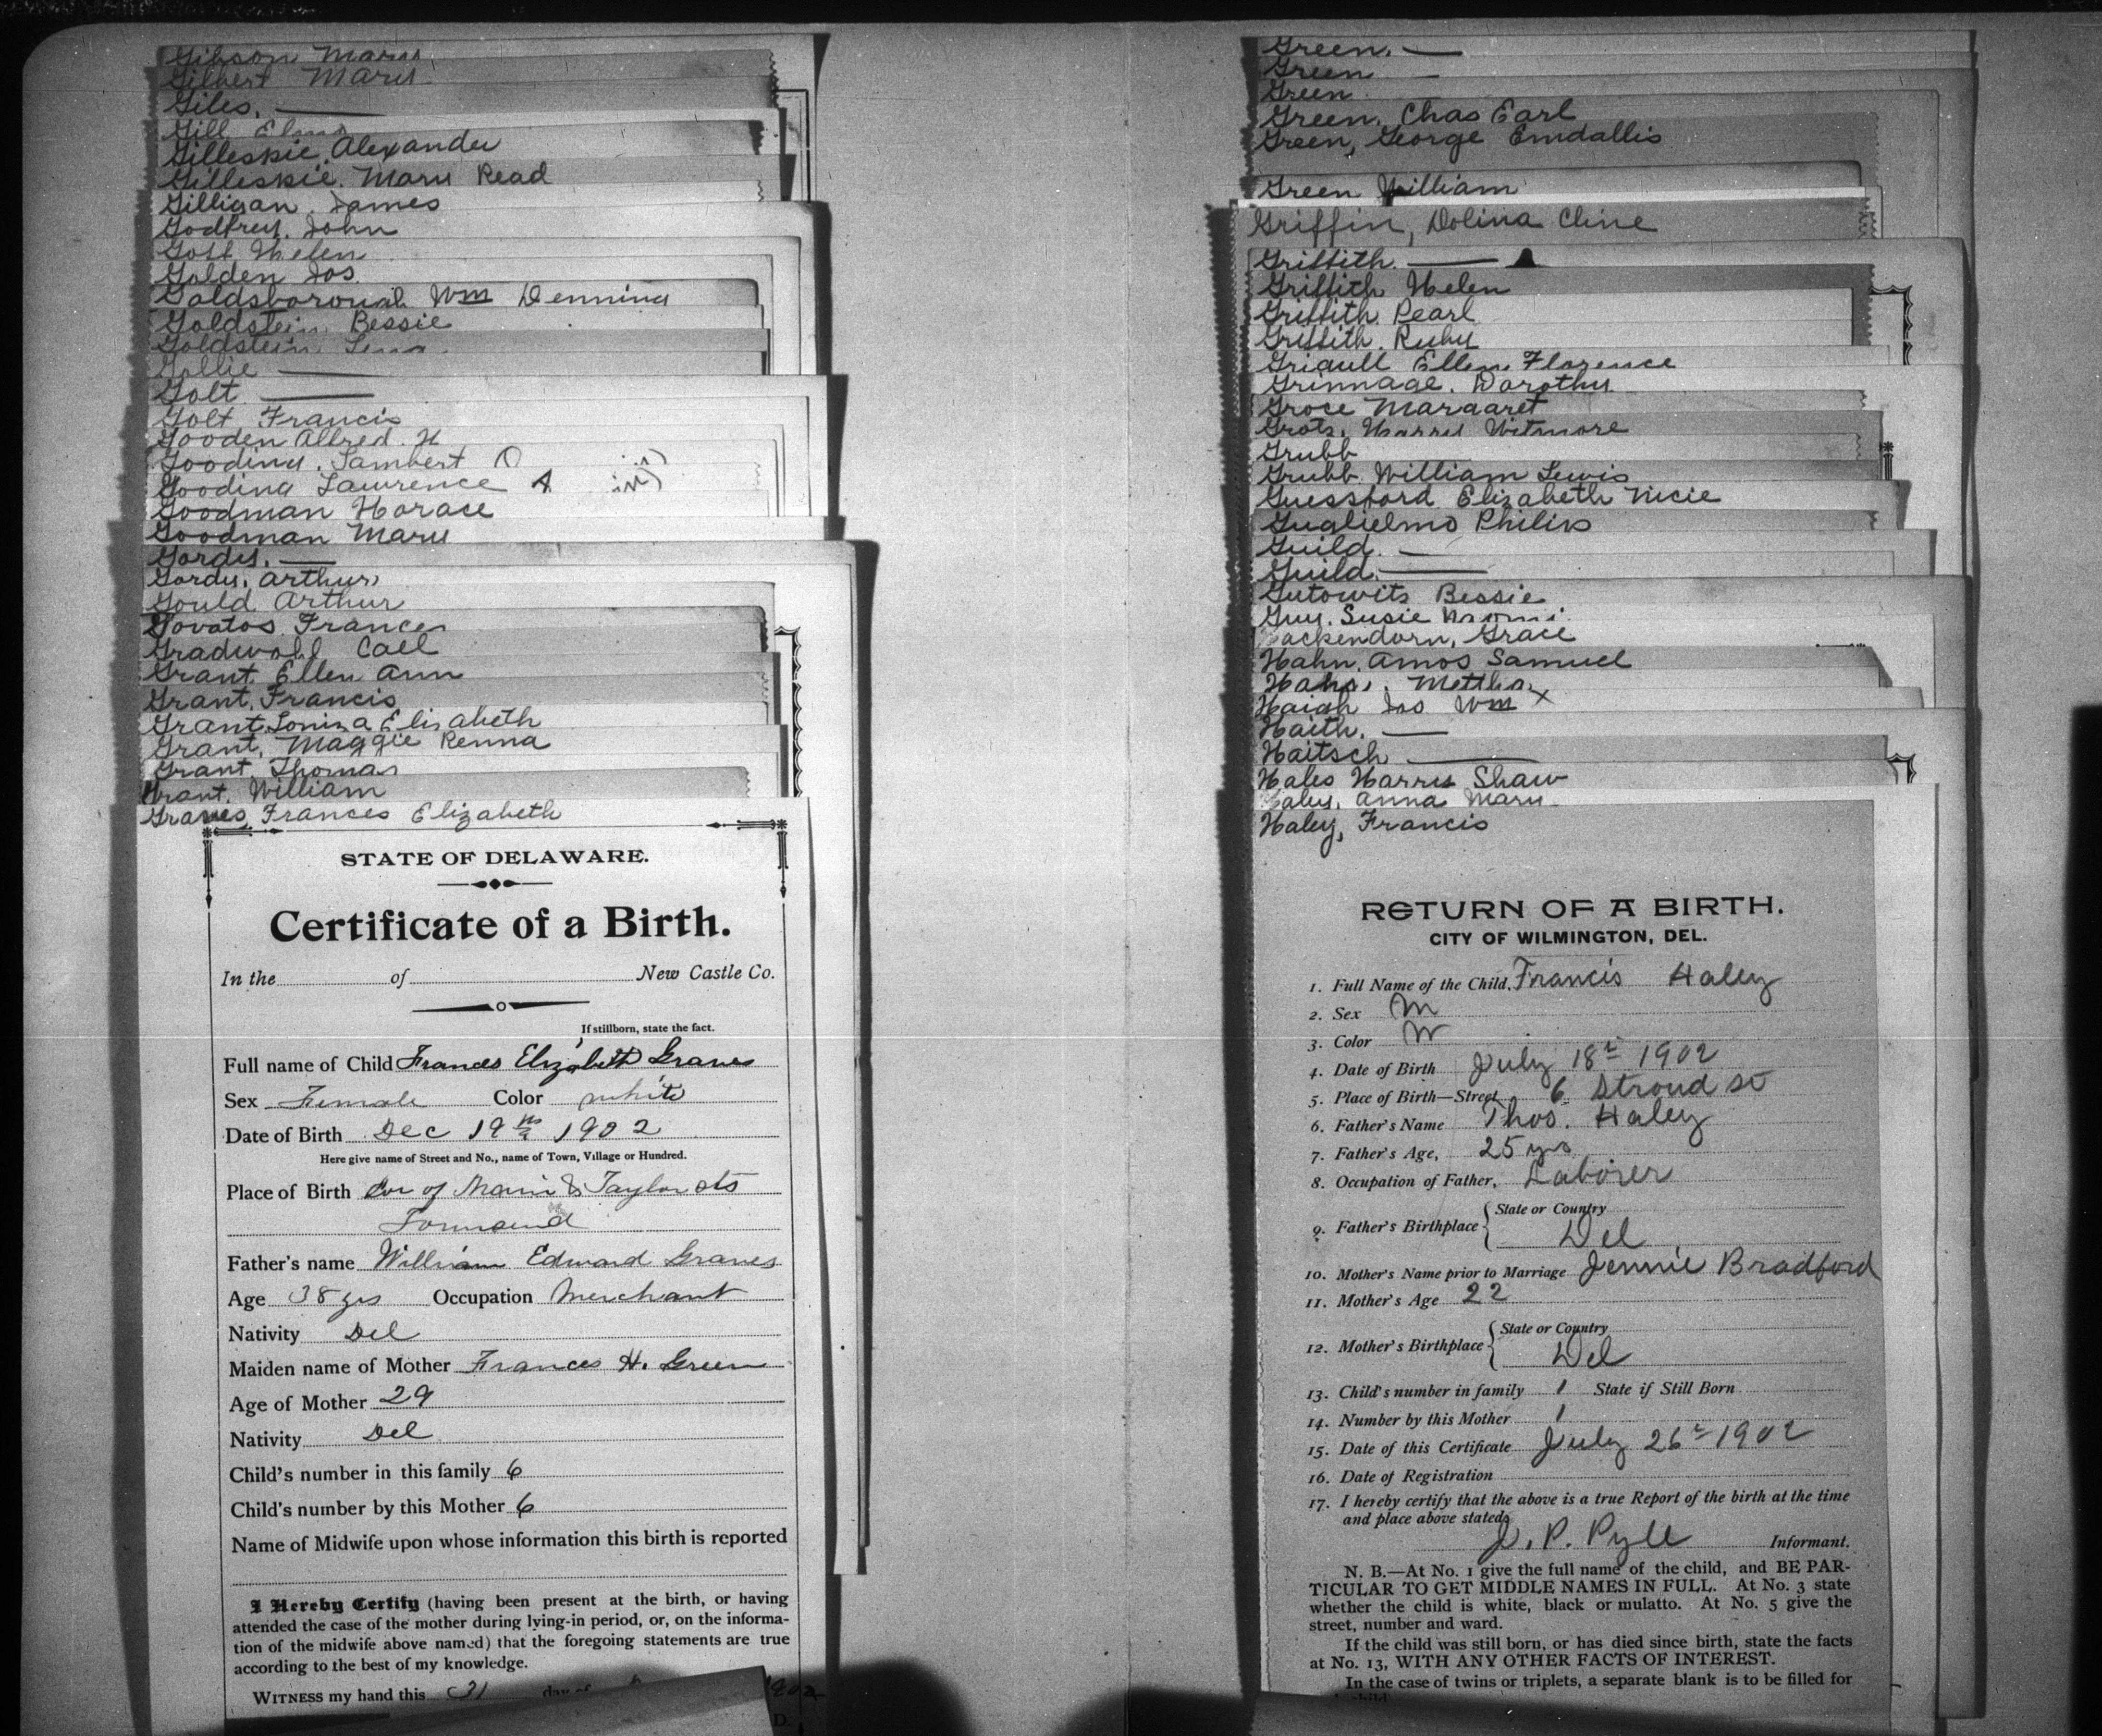 Gibson Mary
Gilbert Mary
Giles.
Gill Elma
Gilleskie, Alexander
Gilleskie. Mary Read
Gilligan. James
Godfrey. John
Goff Helen
Golden Jos.
Goldsborough Wm Denning
Goldstein Bessie
Goldstein Lena
Gollie
Golt
Golt Francis
Gooden Alfred. H
Gooding. Lambert O
Gooding Lawrence A
Goodman Horace
Goodman Mary
Gordy.
Gordy. Arthur
Gould Arthur
Govatos Frances
Gradwohl Cael
Grant Ellen Ann
Grant, Francis
Grant, Elizabeth
Grant, Maggie Renna
Grant Thomas
Grant. William
Graves, Frances Elizabeth
STATE OF DELAWARE.
Certificate of a Birth.
In the of New Castle Co.
If stillborn, state the fact.
Full name of Child Frances Elizabeth Graves
Sex Female Color white
Date of Birth Dec 19th 1902
Here give name of Street and No., name of Town, Village or Hundred.
Place of Birth Cor of Main & Taylor sts
Townsend
Father's name William Edward Graves
Age 38 yrs Occupation Merchant
Nativity Del
Maiden name of Mother Frances H. Green
Age of Mother 29
Nativity Del
Child's number in this family 6
Child's number by this Mother 6
Name of Midwife upon whose information this birth is reported
I Hereby Certify (having been present at the birth, or having
attended the case of the mother during lying-in period, or, on the informa-
tion of the midwife above named) that the foregoing statements are true
according to the best of my knowledge.
WITNESS my hand this 31 day of 1902
D.
Green.
Green
Green
Green, Chas Earl
Green, George Emdallis
Green William
Griffin, Dolina Cline
Griffith.
Griffith Helen
Griffith Pearl
Griffith. Ruby
Ellen Florence
Grinnage. Dorothy
Groce Margaret
Grotz, Harry Witmore
Grubb
Grubb William Lewis
Guessford Elizabeth Nicie
Guglielmo Philip
Guild.
Guild.
Gutowitz Bessie
Guy. Susie Naomi
Hackendorn, Grace
Hahn. Amos Samuel
Hahn. Mettha x
Haigh Jos Wm
Haith.
Haitsch
Hales Harry Shaw
Haley, Anna Mary
Haley, Francis
RETURN OF A BIRTH.
CITY OF WILMINGTON, DEL.
1. Full Name of the Child, Francis Haley
2. Sex M
3. Color W
4. Date of Birth July 18th 1902
5. Place of Birth—Street 6 Stroud St
6. Father's Name Thos. Haley
7. Father's Age, 25 yrs
8. Occupation of Father, Laborer
9. Father's Birthplace { State or Country
Del
10. Mother's Name prior to Marriage Jennie Bradford
11. Mother's Age 22
12. Mother's Birthplace { State or Country
Del
13. Child's number in family 1 State if Still Born
14. Number by this Mother 1
15. Date of this Certificate July 26th 1902
16. Date of Registration
17. I hereby certify that the above is a true Report of the birth at the time
and place above stated,
J. P. Pyle Informant.
N. B.—At No. 1 give the full name of the child, and BE PAR-
TICULAR TO GET MIDDLE NAMES IN FULL. At No. 3 state
whether the child is white, black or mulatto. At No. 5 give the
street, number and ward.
If the child was still born, or has died since birth, state the facts
at No. 13, WITH ANY OTHER FACTS OF INTEREST.
In the case of twins or triplets, a separate blank is to be filled for